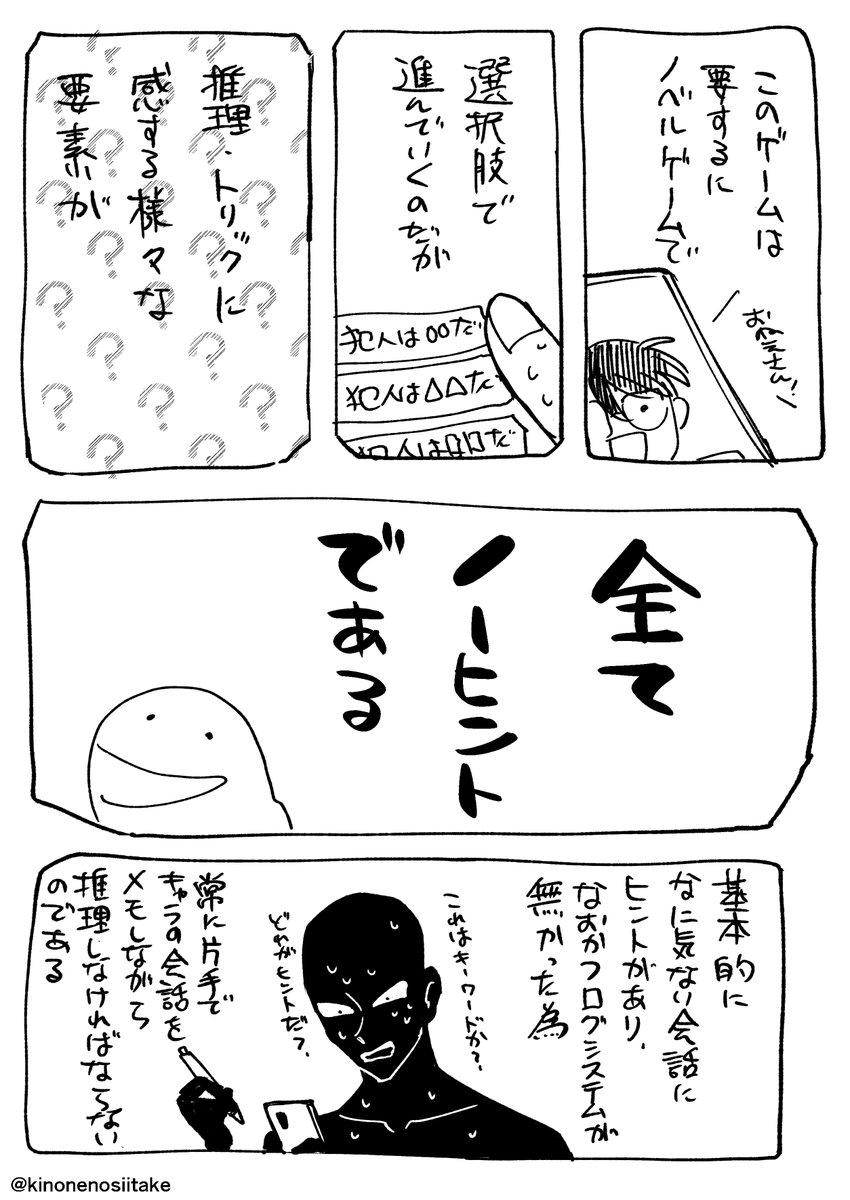 このゲームは
要するに
ノベルゲームで
おねえさん！
選択肢で
進んでいくのだが
犯人は〇〇だ
犯人は△△だ
犯人は口口だ
推理・トリックに
感する様々な
要素が
全て
ノーヒント
である
基本的に
なに気ない会話に
ヒントがあり、
なおかつログシステムが
無かった為
これはキーワードか？
どれがヒントだっ？
常に片手で
キャラの会話を
メモしながら
推理しなければならない
のである
@kinonenosiitake